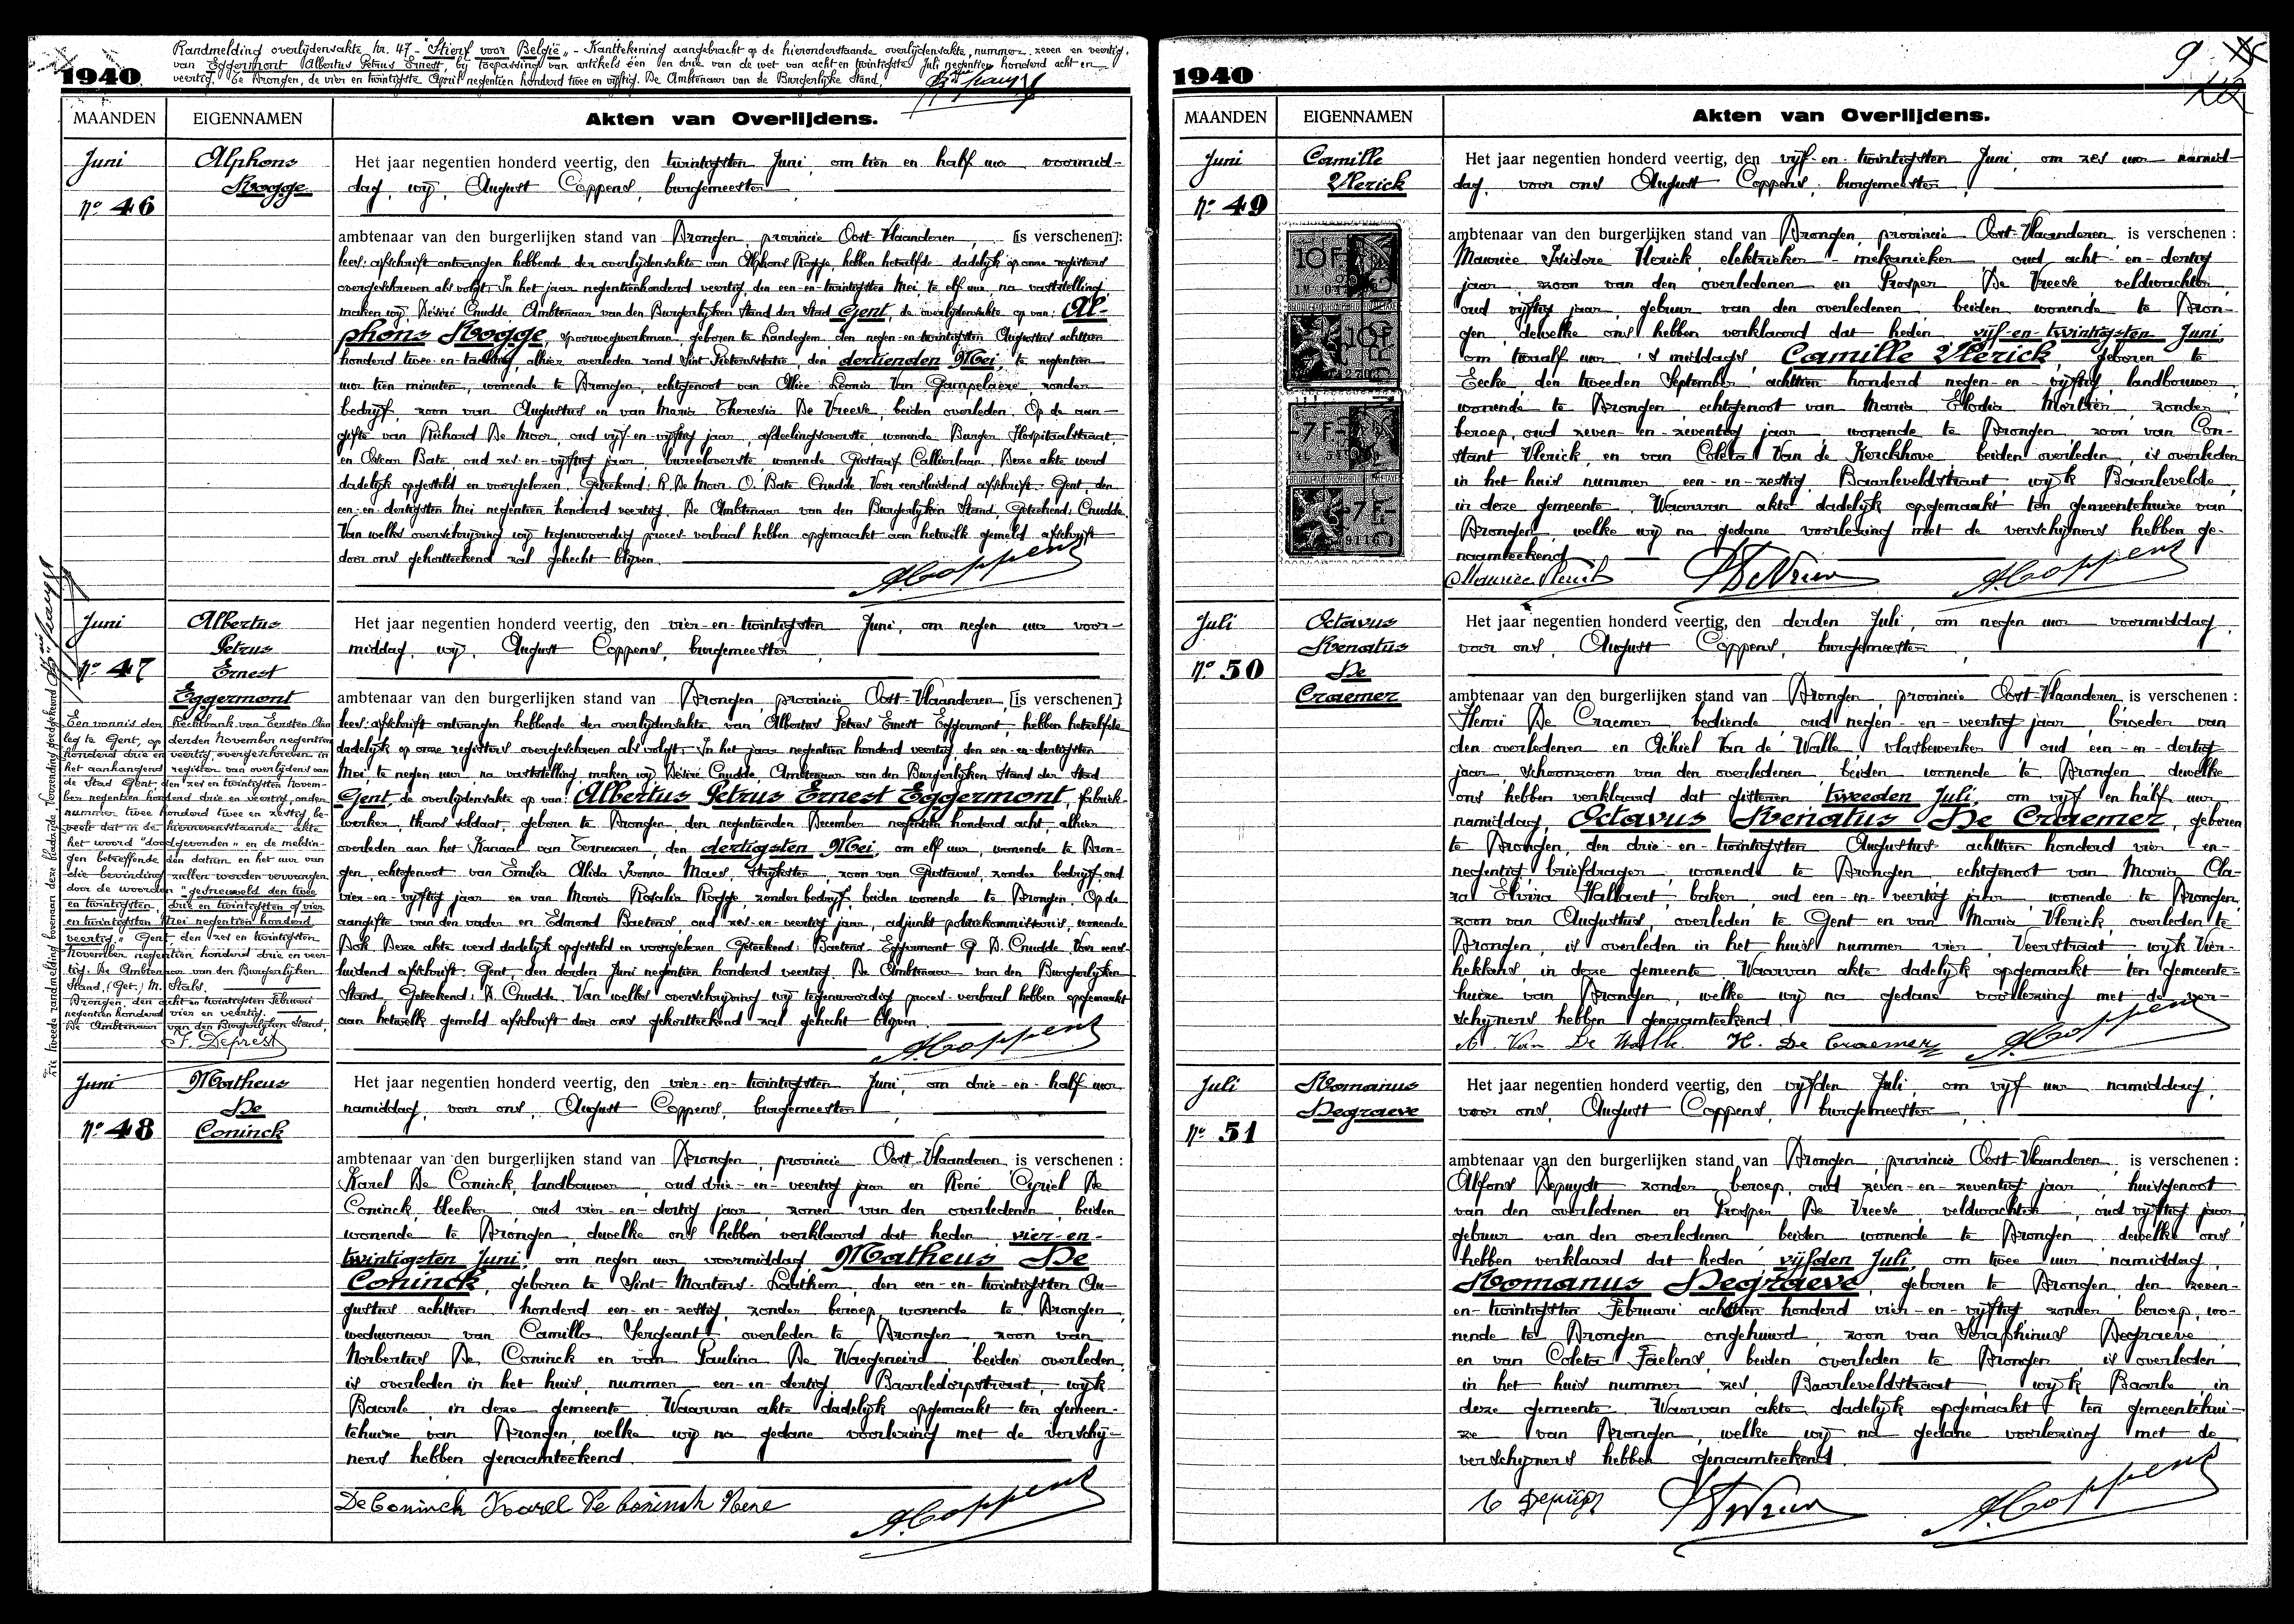 Randmelding overlijdensakte Nr. 47 - "Stierf voor België" - Kanttekening aangebracht op de hieronderstaande overlijdensakte, nummer zeven en veertig,
van Eggermont Albertus Petrus Ernest, bij toepassing van artikels één en drie van de wet van acht en twintigste Juli negentien honderd acht en
veertig. Te Drongen, de vier en twintigste April negentien honderd twee en vijftig. De Ambtenaar van de Burgerlijke Stand,
1940
MAANDEN EIGENNAMEN Akten van Overlijdens.
Juni
No 46
Alphons
Rogge
Het jaar negentien honderd veertig, den twintigsten Juni, om tien en half uur voormid-
dag, wij, August Coppens, burgemeester
ambtenaar van den burgerlijken stand van Drongen, provincie Oost-Vlaanderen, [is verschenen]:
lees: afschrift ontvangen hebbende der overlijdensakte van Alphons Rogge, hebben hetzelfde dadelijk op onze registers
overgeschreven als volgt: In het jaar negentienhonderd veertig, den een-en-twintigsten Mei, te elf uur, na vaststelling
maken wij Désiré Cnudde, Ambtenaar van den Burgerlijken Stand der Stad Gent, de overlijdensakte op van: Al-
phons Rogge, spoorwegwerkman, geboren te Landegem, den negen-en-twintigsten Augustus achttien
honderd twee-en-tachtig, alhier overleden rond Sint Pietersstatie, den dertienden Mei, te negentien
uur tien minuten, wonende te Drongen, echtgenoot van Alice Leonia Van Gampelaere, zonder
bedrijf, zoon van Augustus en van Maria Theresia De Vreese, beiden overleden. Op de aan-
gifte van Richard De Moor, oud vijf-en-vijftig jaar, afdeelingsoverste, wonende Burgen Hospitaalstraat,
en Oscar Bate, oud zes-en-vijftig jaar, bureeloverste, wonende Gustaaf Callierlaan. Deze akte werd
dadelijk opgesteld en voorgelezen. Geteekend: R. De Moor. O. Bate. Cnudde. Voor eensluidend afschrift. Gent, den
een-en-dertigsten Mei negentien honderd veertig. De Ambtenaar van den Burgerlijken Stand, Geteekend: Cnudde.
Van welke overschrijving wij tegenwoordig proces-verbaal hebben opgemaakt aan hetwelk gemeld afschrift
door ons gekortteekend zal gehecht blijven.
A. Coppens
Juni
No 47
Albertus
Petrus
Ernest
Eggermont
Een vonnis der Rechtbank van Eersten Aan
leg te Gent, op derden November negentien
honderd drie en veertig, overgeschreven in
het aanhangend register van overlijdens van
de Stad Gent, den zes en twintigsten Novem-
ber negentien honderd drie en veertig, onder
nummer twee honderd twee en zestig be-
veelt dat in de hiernevenstaande akte
het woord "doodgevonden" en de meldin-
gen betreffende den datum en het uur van
die bevinding zullen worden vervangen
door de woorden "gesneuveld den twee
en twintigsten, drie en twintigsten of vier
en twintigsten Mei negentien honderd
veertig." Gent, den zes en twintigsten
November negentien honderd drie en veer-
tig. De Ambtenaar van den Burgerlijken
Stand, (Get.) M. Stals.
Drongen, den acht en twintigsten Februari
negentien honderd vier en veertig.
De Ambtenaar van den Burgerlijken Stand,
F. Deprest
Zie tweede randmelding bovenaan deze bladzijde. Verzending goedgekeurd
Het jaar negentien honderd veertig, den vier-en-twintigsten Juni, om negen uur voor-
middag, wij, August Coppens, burgemeester
ambtenaar van den burgerlijken stand van Drongen, provincie Oost-Vlaanderen, [is verschenen]
lees: afschrift ontvangen hebbende der overlijdensakte van Albertus Petrus Ernest Eggermont, hebben hetzelfde
dadelijk op onze registers overgeschreven als volgt: In het jaar negentien honderd veertig den een-en-dertigsten
Mei, te negen uur, na vaststelling, maken wij Désiré Cnudde, Ambtenaar van den Burgerlijken Stand der Stad
Gent, de overlijdensakte op van: Albertus Petrus Ernest Eggermont, fabriek-
werker, thans soldaat, geboren te Drongen, den negentienden December negentien honderd acht, alhier
overleden aan het Kanaal van Terneuzen, den dertigsten Mei, om elf uur, wonende te Dron-
gen, echtgenoot van Emilia Alida Ivonna Maes, strijkster, zoon van Gustavus, zonder bedrijf, oud
vier-en-vijftig jaar en van Maria Rosalia Rogge, zonder bedrijf, beiden wonende te Drongen. Op de
aangifte van den vader en Edmond Baetens, oud zes-en-veertig jaar, adjunkt politiekommissaris, wonende
Dok. Deze akte werd dadelijk opgesteld en voorgelezen. Geteekend: Baetens. Eggermont G. D. Cnudde. Voor eens-
luidend afschrift. Gent, den derden Juni negentien honderd veertig. De Ambtenaar van den Burgerlijken
Stand. Geteekend: D. Cnudde. Van welke overschrijving wij tegenwoordig proces-verbaal hebben opgemaakt
aan hetwelk gemeld afschrift door ons gekortteekend zal gehecht blijven.
A. Coppens
Juni
No 48
Matheus
De
Coninck
Het jaar negentien honderd veertig, den vier-en-twintigsten Juni, om drie-en-half uur
namiddag, voor ons, August Coppens, burgemeester
ambtenaar van den burgerlijken stand van Drongen, provincie Oost-Vlaanderen, is verschenen:
Karel De Coninck, landbouwer, oud drie-en-veertig jaar en René Cyriel De
Coninck, bleeker, oud vier-en-dertig jaar, zonen van den overledenen, beiden
wonende te Drongen, dewelke ons hebben verklaard dat heden, vier-en-
twintigsten Juni, om negen uur voormiddag, Matheus De
Coninck, geboren te Sint-Martens-Laathem, den een-en-twintigsten Au-
gustus achttien honderd een-en-zestig, zonder beroep, wonende te Drongen,
weduwnaar van Camilla Sergeant, overleden te Drongen, zoon van
Norbertus De Coninck en van Paulina De Waegeneire, beiden overleden,
is overleden in het huis, nummer een-en-dertig Baarledorpstraat, wijk
Baarle, in deze gemeente. Waarvan akte dadelijk opgemaakt ten gemeen-
tehuize van Drongen, welke wij na gedane voorlezing met de verschij-
ners hebben genaamteekend.
De Coninck Karel De Coninck Rene A. Coppens
1940
9
MAANDEN EIGENNAMEN Akten van Overlijdens.
Juni
No 49
Camille
Vlerick
10F
10F
7F
7F
Het jaar negentien honderd veertig, den vijf-en-twintigsten Juni, om zes uur namid-
dag, voor ons August Coppens, burgemeester
ambtenaar van den burgerlijken stand van Drongen, provincie Oost-Vlaanderen, is verschenen:
Maurice Isidore Vlerick, elektrieker-mekanieker, oud acht-en-dertig
jaar, zoon van den overledenen en Prosper De Vreese, veldwachter,
oud vijftig jaar, gebuur van den overledenen, beiden wonende te Dron-
gen, dewelke ons hebben verklaard dat heden, vijf-en-twintigsten Juni,
om twaalf uur 's middags, Camille Vlerick, geboren te
Eecke, den tweeden September achttien honderd negen-en-vijftig, landbouwer,
wonende te Drongen, echtgenoot van Maria Elodia Mortier, zonder
beroep, oud zeven-en-zeventig jaar wonende te Drongen, zoon van Con-
stant Vlerick, en van Coleta Van de Kerckhove beiden overleden, is overleden
in het huis nummer een-en-zestig, Baarleveldstraat wijk Baarlevelde,
in deze gemeente. Waarvan akte dadelijk opgemaakt ten gemeentehuize van
Drongen, welke wij na gedane voorlezing met de verschijners hebben ge-
naamteekend.
Maurice Vlerick P. De Vreese A. Coppens
Juli
No 50
Octavus
Renatus
De
Craemer
Het jaar negentien honderd veertig, den derden Juli, om negen uur voormiddag,
voor ons, August Coppens, burgemeester
ambtenaar van den burgerlijken stand van Drongen, provincie Oost-Vlaanderen, is verschenen:
Henri De Craemer, bediende, oud negen-en-veertig jaar, broeder van
den overledenen en Achiel Van de Walle, vlasbewerker oud een-en-dertig
jaar, schoonzoon van den overledenen, beiden wonende te Drongen dewelke
ons hebben verklaard dat gisteren tweeden Juli, om vijf en half uur
namiddag, Octavus Renatus De Craemer, geboren
te Drongen, den drie-en-twintigsten Augustus achttien honderd vier en-
negentig, briefdrager, wonende te Drongen, echtgenoot van Maria Cla-
ra Elvira Hallaert, baker, oud een-en-veertig jaar, wonende te Drongen,
zoon van Augustus, overleden te Gent en van Maria Vlerick, overleden te
Drongen, is overleden in het huis nummer vier, Veerstraat, wijk Vier-
hekkens, in deze gemeente. Waarvan akte dadelijk opgemaakt ten gemeente-
huize van Drongen, welke wij na gedane voorlezing met de ver-
schijners hebben genaamteekend.
A. Van De Walle H. De Craemer A. Coppens
Juli
No 51
Romanus
Degraeve
Het jaar negentien honderd veertig, den vijfden Juli, om vijf uur namiddag,
voor ons, August Coppens, burgemeester
ambtenaar van den burgerlijken stand van Drongen, provincie Oost-Vlaanderen, is verschenen:
Alfons Depuydt zonder beroep, oud zeven-en-zeventig jaar, huisgenoot
van den overledenen en Prosper De Vreese, veldwachter, oud vijftig jaar,
gebuur van den overledenen beiden wonende te Drongen dewelke ons
hebben verklaard dat heden vijfden Juli, om twee uur namiddag,
Romanus Degraeve, geboren te Drongen, den zeven-
en-twintigsten Februari achttien honderd vier-en-vijftig zonder beroep, wo-
nende te Drongen ongehuwd, zoon van Seraphinus Degraeve
en van Coleta Faelens, beiden overleden te Drongen, is overleden
in het huis nummer zes, Baarleveldstraat, wijk Baarle, in
deze gemeente. Waarvan akte dadelijk opgemaakt ten gemeentehui-
ze van Drongen, welke wij na gedane voorlezing met de
verschijners hebben genaamteekend.
A. Coppens